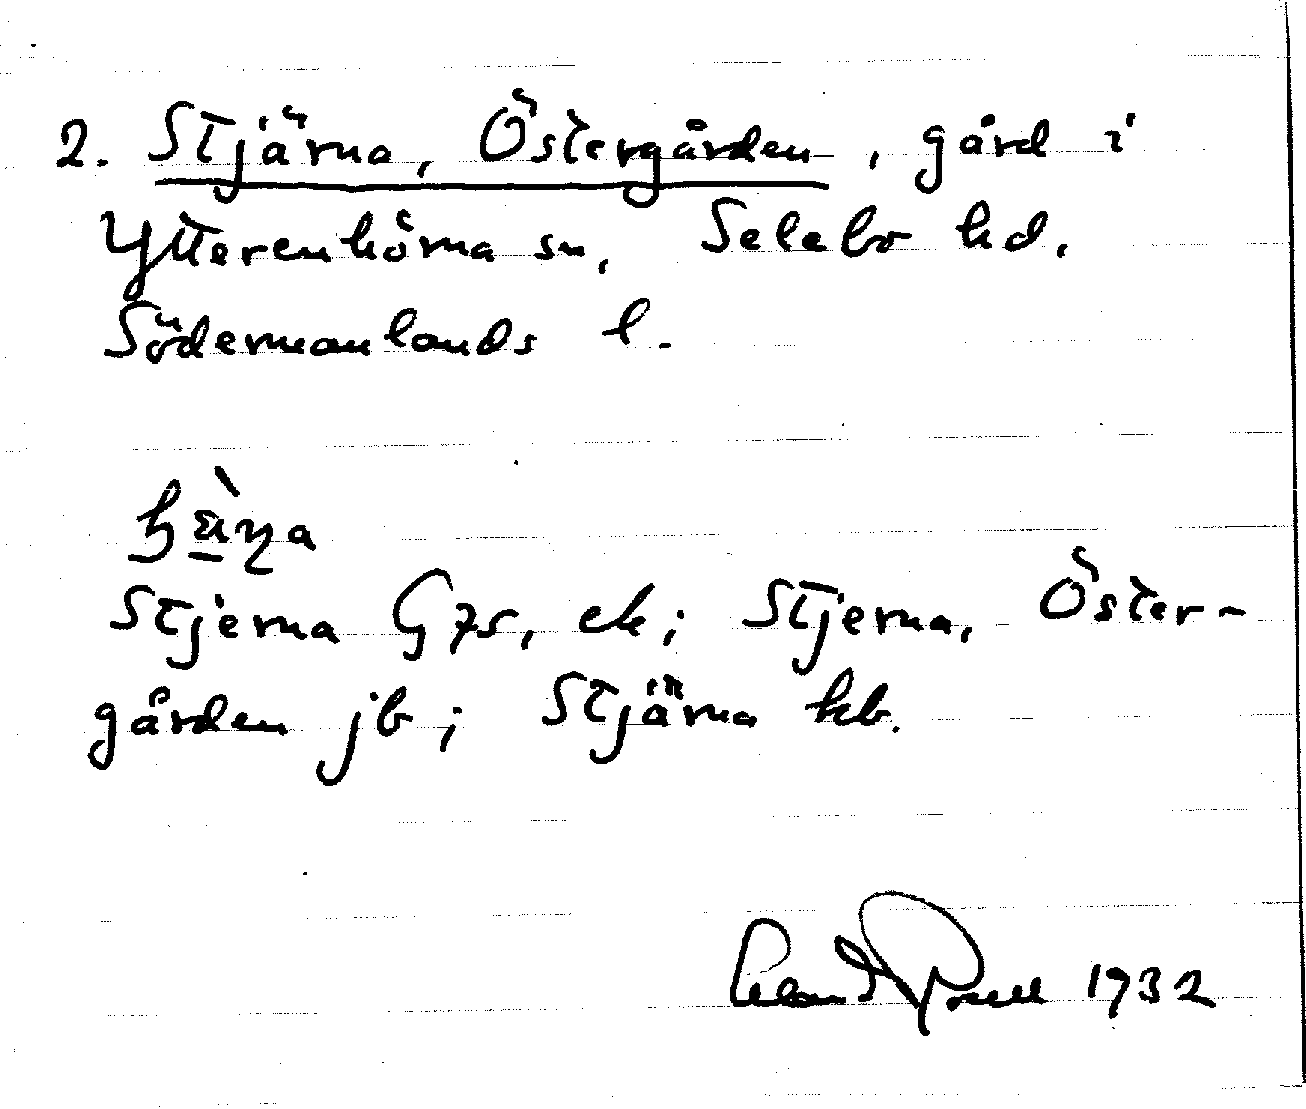 2. Stjärna, Östergården, gård i
Ytterenhörna sn, Selebo hd.
Södermanlands l.
Stjerna G 75, ek; Stjerna, Öster-
gården jb; Stjärna hb.
1932